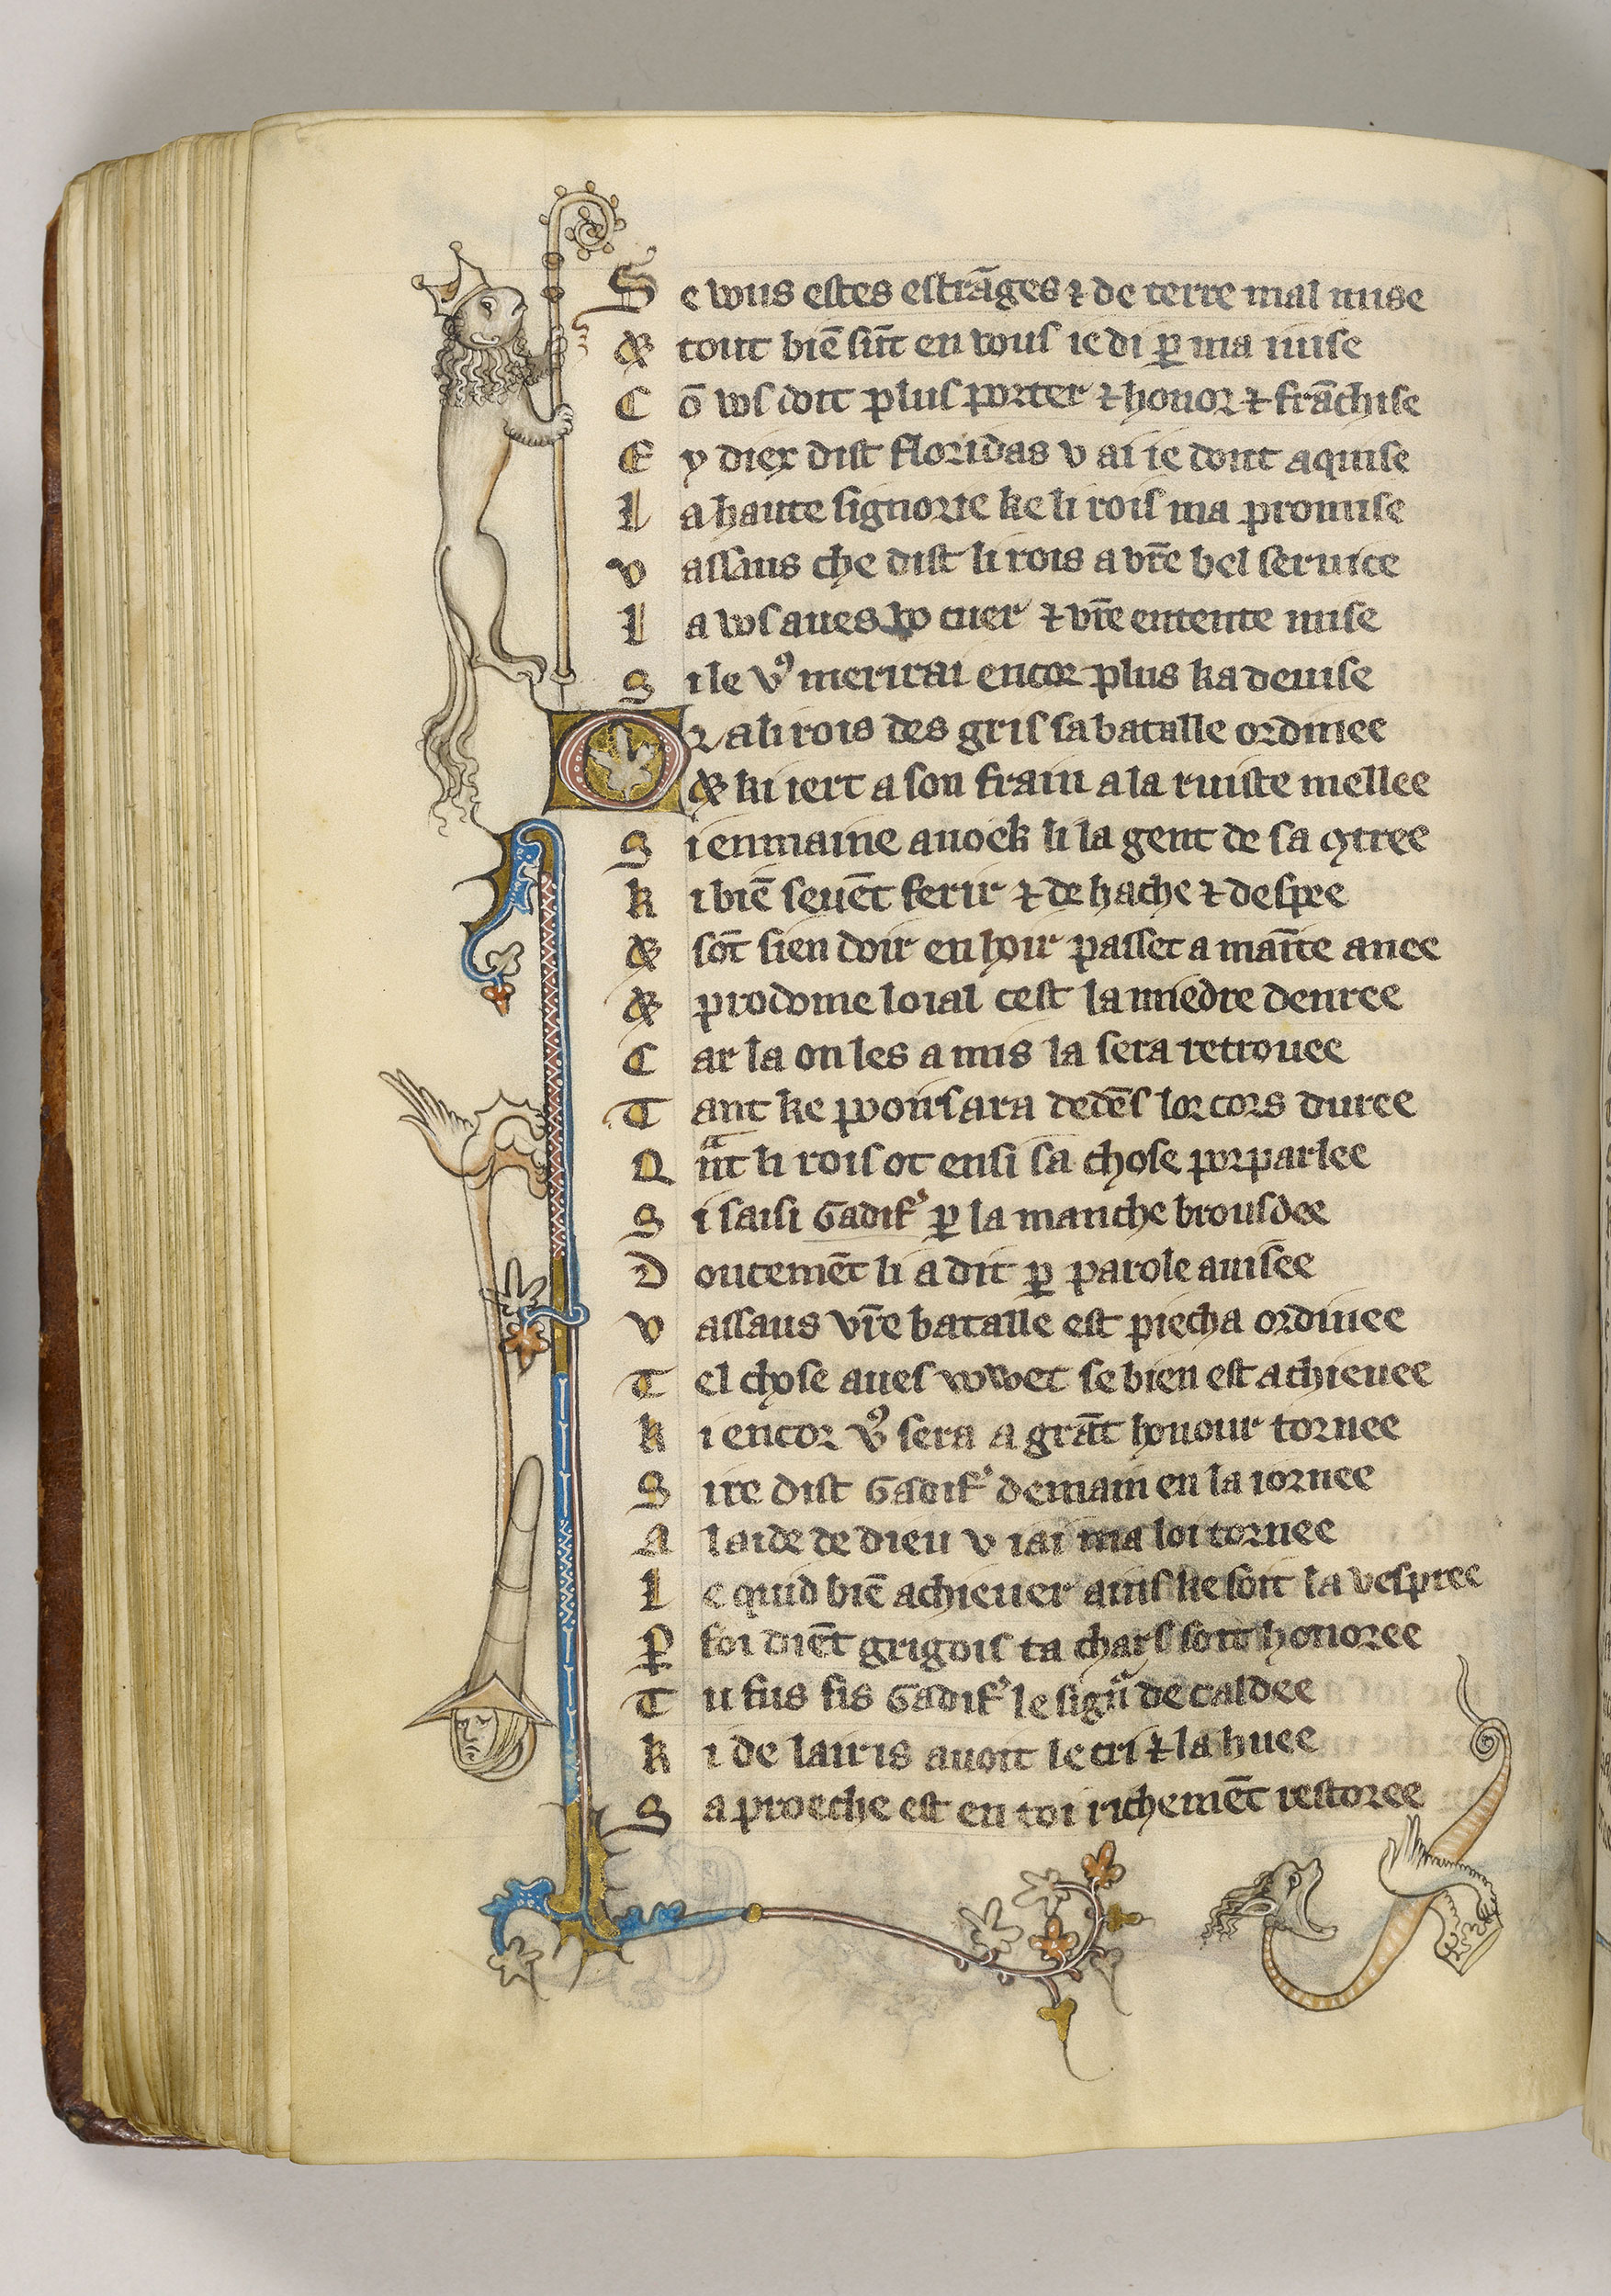 Se vous estes estrāges ⁊ de terre mal mise
Et tout biē sūt en vous ie di ꝑ ma mise
Cō vos doit plus porter ⁊ honor ⁊ frāchise
Ey diex dist floridas v ai ie dont aquise
La haute signorie ke li rois ma promise
Vassaus che dist li rois a vr̄e bel seruice
La vos aues vo cuer ⁊ vr̄e entente mise
Si le vꝰ merirai encor plus ka deuise
Or a li rois des gris sa batalle ordinee
Et ki iert a son frain a la ruiste mellee
Si enmaine auoek li la gent de sa ꝯtree
Ki biē seuēt ferir ⁊ de hache ⁊ despee
Et sōt sien doir en hoir passet a mainte anee
Et prodome loial cest la miedre denree
Car la on les a mis la sera retrouee
Tant ke pooir sara dedēs lor cors duree
Qᵃnt li rois ot ensi sa chose porparlee
Si saisi Gadifʼ ꝑ la manche brousdee
Doucemēt li a dit ꝑ parole auisee
Vassaus vr̄e batalle est piecha ordinee
Tel chose aues vowet se bien est achieuee
Ki encor vꝰ sera a grāt honour tornee
Sire dist Gadifʼ demain en la iornee
A laide de dieu v iai ma loi tornee
Le quid biē achieuer ains ke soit la vespree
Ꝑ foi diēt grigois ta chars soit honoree
Tu fus fis Gadifʼ le signʳ de caldee
Ki de lairis auoit le cri ⁊ la huee
Sa proeche est en toi richemēt restoree